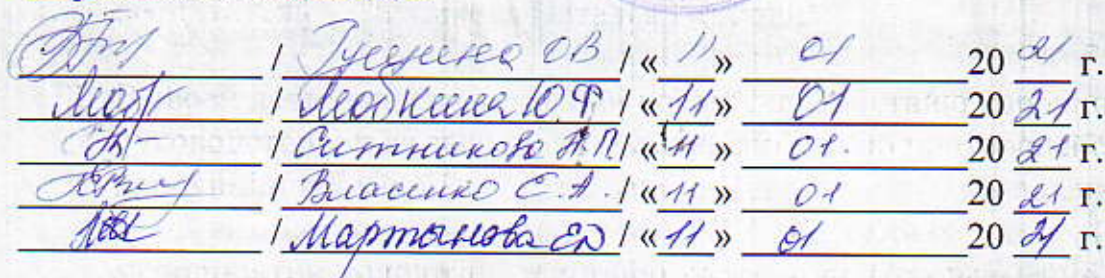 / О.В / «11» 01 2021 г.
/ Мабкина Ю.Ф / «11» 01 2021 г.
/ Ситникова Н.П / «11» 01. 2021 г.
/ Власенко Е.А. / «11» 01 2021 г.
/ Мартынова Е / «11» 01 2021 г.